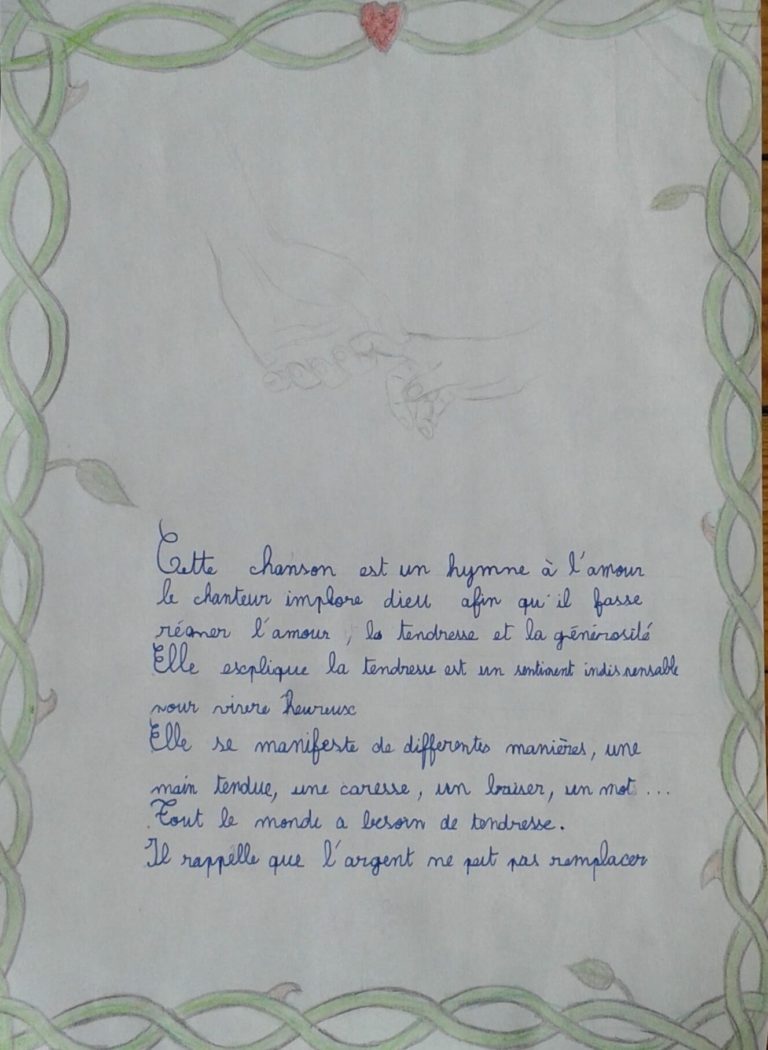 Cette chanson est un hymne à l'amour
le chanteur implore dieu afin qu'il fasse
régner l'amour, la tendresse et la générosité
Elle esxplique la tendresse est un sentiment indispensable
pour vivre heureux
Elle se manifeste de differentes manières, une
main tendue, une caresse, un baiser, un mot ...
Tout le monde a besoin de tendresse.
Il rappelle que l'argent ne peut pas remplacer